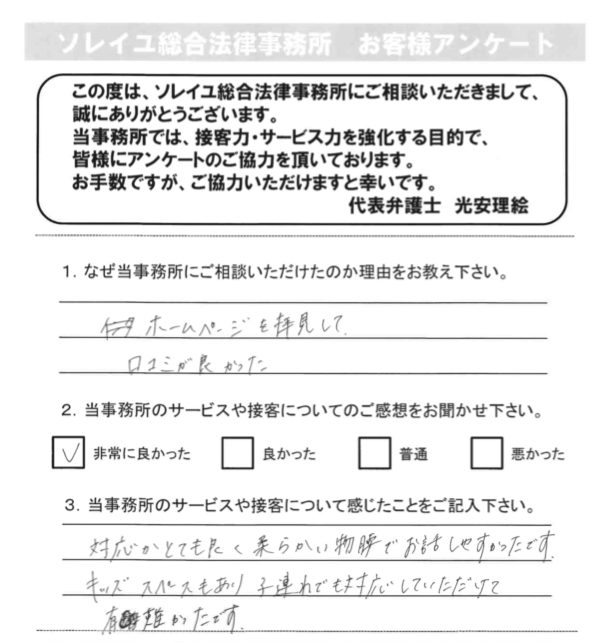 ソレイユ総合法律事務所　お客様アンケート
この度は、ソレイユ総合法律事務所にご相談いただきまして、
誠にありがとうございます。
当事務所では、接客力・サービス力を強化する目的で、
皆様にアンケートのご協力を頂いております。
お手数ですが、ご協力いただけますと幸いです。
代表弁護士　光安理絵
1. なぜ当事務所にご相談いただけたのか理由をお教え下さい。
ホームページを拝見して、
口コミが良かった
2. 当事務所のサービスや接客についてのご感想をお聞かせ下さい。
✓ 非常に良かった　良かった　普通　悪かった
3. 当事務所のサービスや接客について感じたことをご記入下さい。
対応がとても良く柔らかい物腰でお話しやすかったです。
キッズスペースもあり子連れでも対応していただけて
有難かったです。